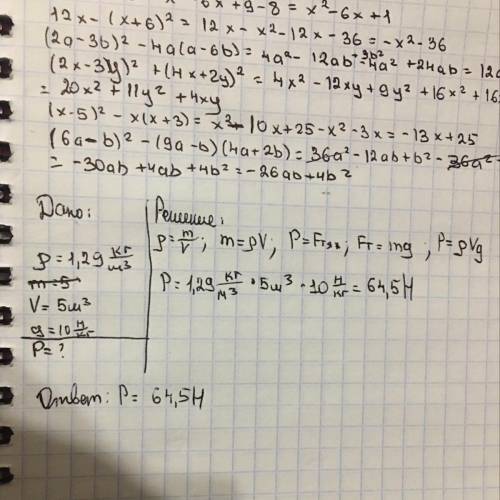 6x + 9 - 8 = x² - 6x + 1
12x - (x+6)² = 12x - x² - 12x - 36 = -x² - 36
(2a - 3b)² - 4a(a - 6b) = 4a² - 12ab + 9b² - 4a² + 24ab = 12a
(2x - 3y)² + (4x + 2y)² = 4x² - 12xy + 9y² + 16x² + 16
= 20x² + 11y² + 4xy
(x - 5)² - x(x + 3) = x² - 10x + 25 - x² - 3x = -13x + 25
(6a - b)² - (9a - b)(4a + 2b) = 36a² - 12ab + b² - 36a²
= -30ab + 4ab + 4b² = -26ab + 4b²
Дано:
ρ = 1,29 кг/м³
m = 5
V = 5м³
g = 10 Н/кг
P = ?
Решение:
ρ = m/V ; m = ρV ; P = Fтяж ; Fт = mg ; P = ρVg
P = 1,29 кг/м³ · 5м³ · 10 Н/кг = 64,5Н
Ответ: P = 64,5Н